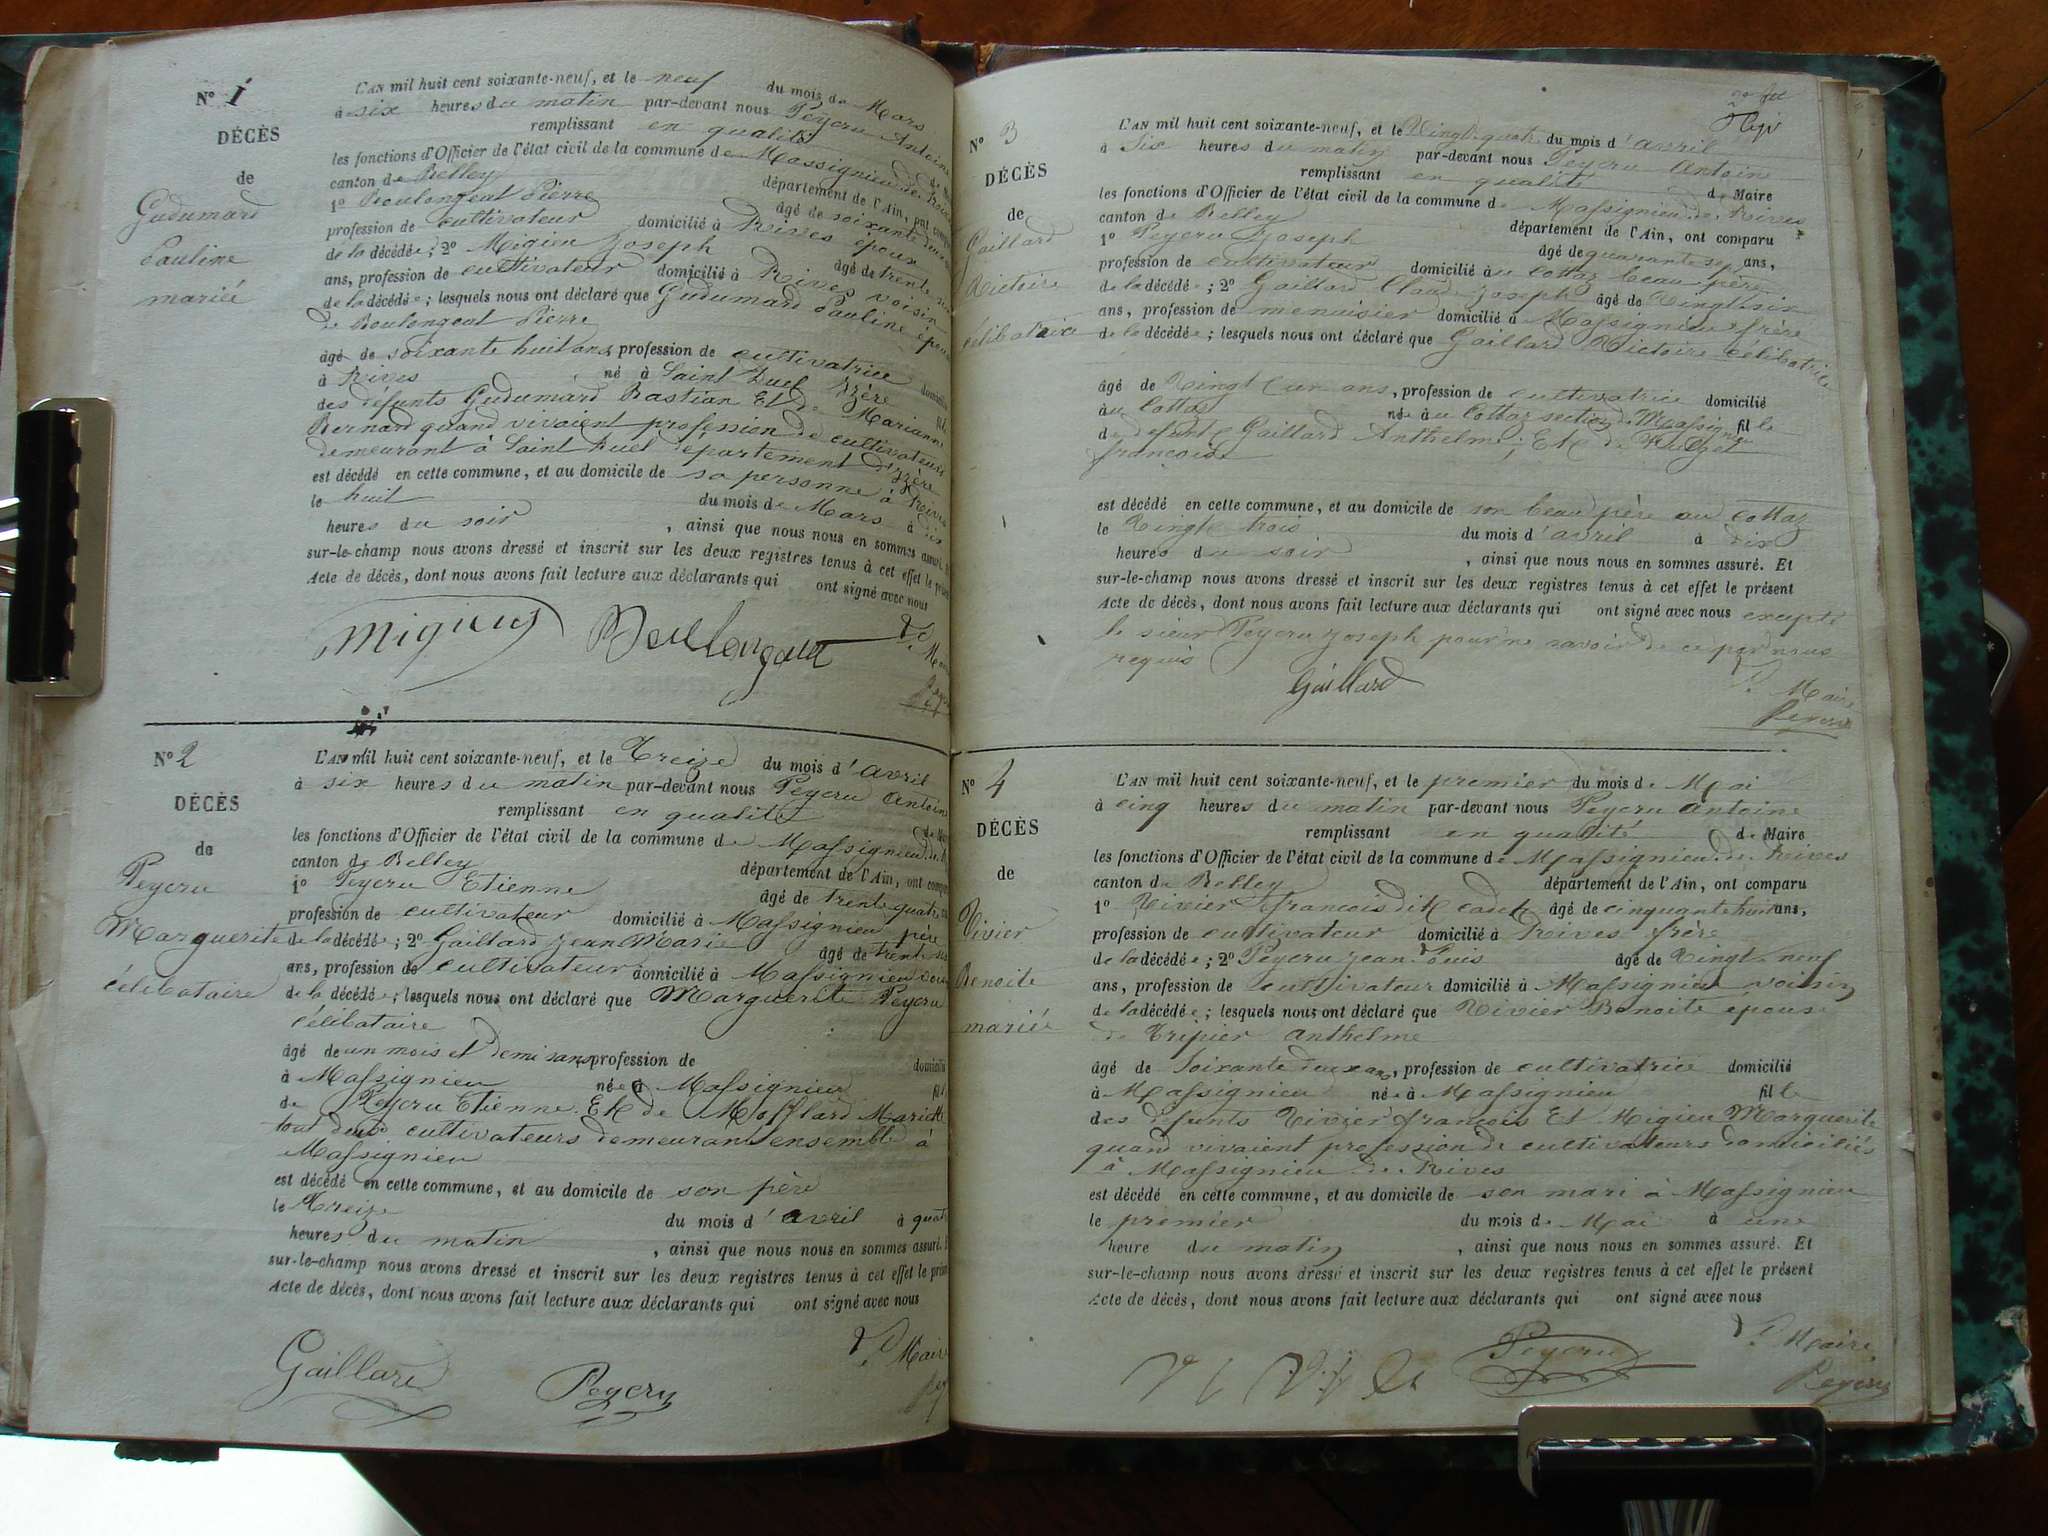 N° 1
DÉCÈS
de
Gudumard
Pauline
mariée
L'AN mil huit cent soixante-neuf, et le neuf du mois de Mars
à six heures du matin par-devant nous Peycru Antoine
remplissant en qualité
les fonctions d'Officier de l'état civil de la commune de Massignieu de Rives
canton de Belley département de l'Ain, ont comparu
1° Boulongeat Pierre âgé de soixante
profession de cultivateur domicilié à Rives époux
de la décédée ; 2° Migieu Joseph âgé de trente
ans, profession de cultivateur domicilié à Rives voisin
de la décédée ; lesquels nous ont déclaré que Gudumard Pauline épouse
de Boulongeat Pierre
âgé de soixante huit ans, profession de cultivatrice domicilié
à Rives né à Saint Izère
des défunts Gudumard Bastian Et de Marianne
Bernard quand vivaient profession de cultivateurs
demeurant à Saint département d'Izère
est décédé en cette commune, et au domicile de sa personne à Rives
le huit du mois de Mars à dix
heures du soir , ainsi que nous nous en sommes assuré.
sur-le-champ nous avons dressé et inscrit sur les deux registres tenus à cet effet le présent
Acte de décès, dont nous avons fait lecture aux déclarants qui ont signé avec nous
Migieu Boulongeat Le Maire
N° 2
DÉCÈS
de
Peycru
Marguerite
célibataire
L'AN mil huit cent soixante-neuf, et le treize du mois d'avril
à six heures du matin par-devant nous Peycru Antoine
remplissant en qualité de Maire
les fonctions d'Officier de l'état civil de la commune de Massignieu de
canton de Belley département de l'Ain, ont comparu
1° Peycru Etienne âgé de trente quatre
profession de cultivateur domicilié à Massignieu père
de la décédée ; 2° Gaillard Jean Marie âgé de trente
ans, profession de cultivateur domicilié à Massignieu
de la décédée ; lesquels nous ont déclaré que Marguerite Peycru
célibataire
âgé de un mois et demi sans profession de domicilié
à Massignieu née à Massignieu fil
de Peycru Etienne Et de Mofflard Mariette
tout deux cultivateurs demeurant ensemble à
Massignieu
est décédé en cette commune, et au domicile de son père
le treize du mois d'avril à quatre
heures du matin , ainsi que nous nous en sommes assuré.
sur-le-champ nous avons dressé et inscrit sur les deux registres tenus à cet effet le présent
Acte de décès, dont nous avons fait lecture aux déclarants qui ont signé avec nous
Gaillard Peycru Le Maire
N° 3
DÉCÈS
de
Gaillard
Victoire
célibatrice
L'AN mil huit cent soixante-neuf, et le Vingt quatre du mois d'avril
à six heures du matin par-devant nous Peycru Antoine
remplissant en qualité de Maire
les fonctions d'Officier de l'état civil de la commune de Massignieu de Rives
canton de Belley département de l'Ain, ont comparu
1° Peycru Joseph âgé de quarante sept ans,
profession de cultivateur domicilié à au Cottaz beau père
de la décédée ; 2° Gaillard Claude Joseph âgé de Vingt six
ans, profession de menuisier domicilié à Massignieu frère
de la décédée ; lesquels nous ont déclaré que Gaillard Victoire célibatrice
âgé de Vingt un ans, profession de cultivatrice domicilié
au Cottaz née à au Cottaz section de Massignieu fille
de défunt Gaillard Anthelme ; Et de
françoise
est décédé en cette commune, et au domicile de son beau père au Cottaz
le Vingt trois du mois d'avril à dix
heures du soir , ainsi que nous nous en sommes assuré. Et
sur-le-champ nous avons dressé et inscrit sur les deux registres tenus à cet effet le présent
Acte de décès, dont nous avons fait lecture aux déclarants qui ont signé avec nous excepté
le sieur Peycru Joseph pour ne savoir de ce par nous
requis
Gaillard Le Maire
Peycru
N° 4
DÉCÈS
de
Vivier
Benoite
mariée
L'AN mil huit cent soixante-neuf, et le premier du mois de Mai
à cinq heures du matin par-devant nous Peycru Antoine
remplissant en qualité de Maire
les fonctions d'Officier de l'état civil de la commune de Massignieu de Rives
canton de Belley département de l'Ain, ont comparu
1° Vivier françois dit âgé de cinquante huit ans,
profession de cultivateur domicilié à Rives frère
de la décédée ; 2° Peycru Jean Louis âgé de Vingt neuf
ans, profession de cultivateur domicilié à Massignieu voisin
de la décédée ; lesquels nous ont déclaré que Vivier Benoite épouse
de Tripier Anthelme
âgé de Soixante deux ans, profession de cultivatrice domicilié
à Massignieu née à Massignieu fille
des défunts Vivier françois Et Migieu Marguerite
quand vivaient profession de cultivateurs domiciliés
à Massignieu de Rives
est décédé en cette commune, et au domicile de son mari à Massignieu
le premier du mois de Mai à une
heure du matin , ainsi que nous nous en sommes assuré. Et
sur-le-champ nous avons dressé et inscrit sur les deux registres tenus à cet effet le présent
Acte de décès, dont nous avons fait lecture aux déclarants qui ont signé avec nous
Peycru Le Maire
Peycru